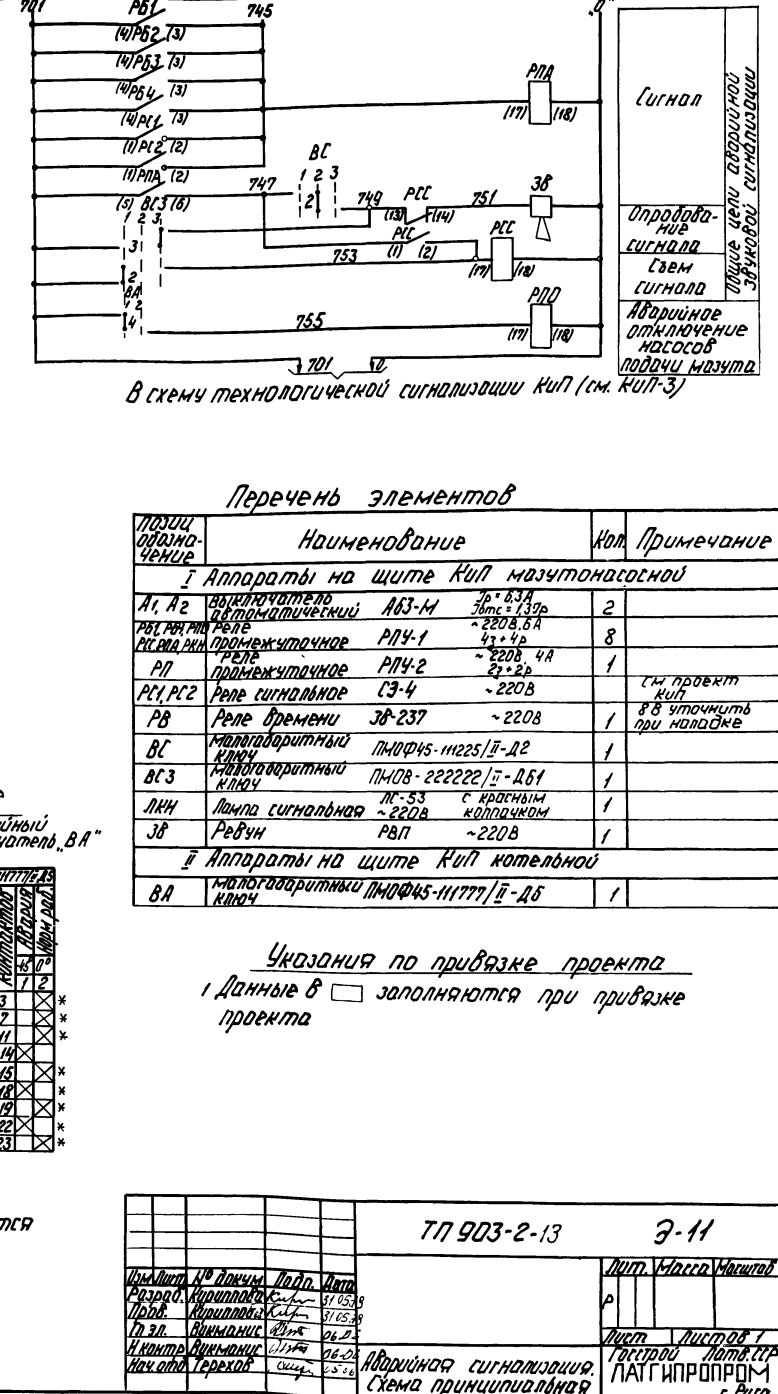 701 РБ1 745 "0"
(4)РБ2 (3)
(4)РБ3 (3)
(4)РБ4 (3)
(4)РС1 (3)
(1)РС2 (2)
(1)РПА (2)
(5) ВС3 (6)
1 2 3
3
2
ВА
1 2
4
747
ВС
1 2 3
2
749 РСС 751
(13) (14)
РСС
(1) (2)
753
755
РПА
(17) (18)
ЗВ
РСС
(17) (18)
РПО
(17) (18)
701 0
Сигнал
Опробова-
ние
сигнала
Съем
сигнала
Аварийное
отключение
насосов
подачи мазута
Общие цепи аварийной
звуковой сигнализации
В схему технологической сигнализации КиП (см. КиП-3)
Перечень элементов
Позиц обозна-чение Наименование Кол Примечание
I Аппараты на щите КиП мазутонасосной
А1, А2 Выключатель автоматический АБ3-М Iр=6,3А Iотс=1,3Iр 2
Реле промежуточное РПУ-1 ~220В, 6А 4з+4р 8
РП Реле промежуточное РПУ-2 ~220В, 4А 2з+2р 1
РС1, РС2 Реле сигнальное СЭ-4 ~220В см проект КиП
РВ Реле времени ЭВ-237 ~220В 1 8В уточнить при наладке
ВС Малогабаритный ключ ПМОФ45-111225/II-Д2 1
ВС3 Малогабаритный ключ ПМОВ-222222/II-Д61 1
ЛКН Лампа сигнальная ЛС-53 ~220В с красным колпачком 1
ЗВ Ревун РВП ~220В 1
II Аппараты на щите КиП котельной
ВА Малогабаритный ключ ПМОФ45-111777/II-Д6 1
Указания по привязке проекта
1 Данные в заполняются при привязке
проекта
"ВА"
контактов Авария Норм.раб.
45° 0°
1 2
3 *
7 *
11 *
14
15 *
18 *
19 *
22 *
23 *
тся
ТП 903-2-13 Э-11
Изм Лист № докум Подп. Дата
Разраб. Кириллова 31 05.79
Пров. Кириллова 31 05.79
Гл эл. Викманис
Н контр Викманис
Нач. отд Терехов
Лит. Масса Масштаб
Р
Лист Листов 1
Аварийная сигнализация.
Схема принципиальная
Госстрой Латв.ССР
ЛАТГИПРОПРОМ
г. Рига